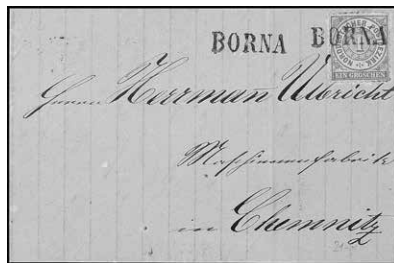 BORNA BORNA
NORDDEUTSCHER POSTBEZIRK
1
EIN GROSCHEN
Herrn Herrman Ulbricht
Maschinenfabrik
in Chemnitz